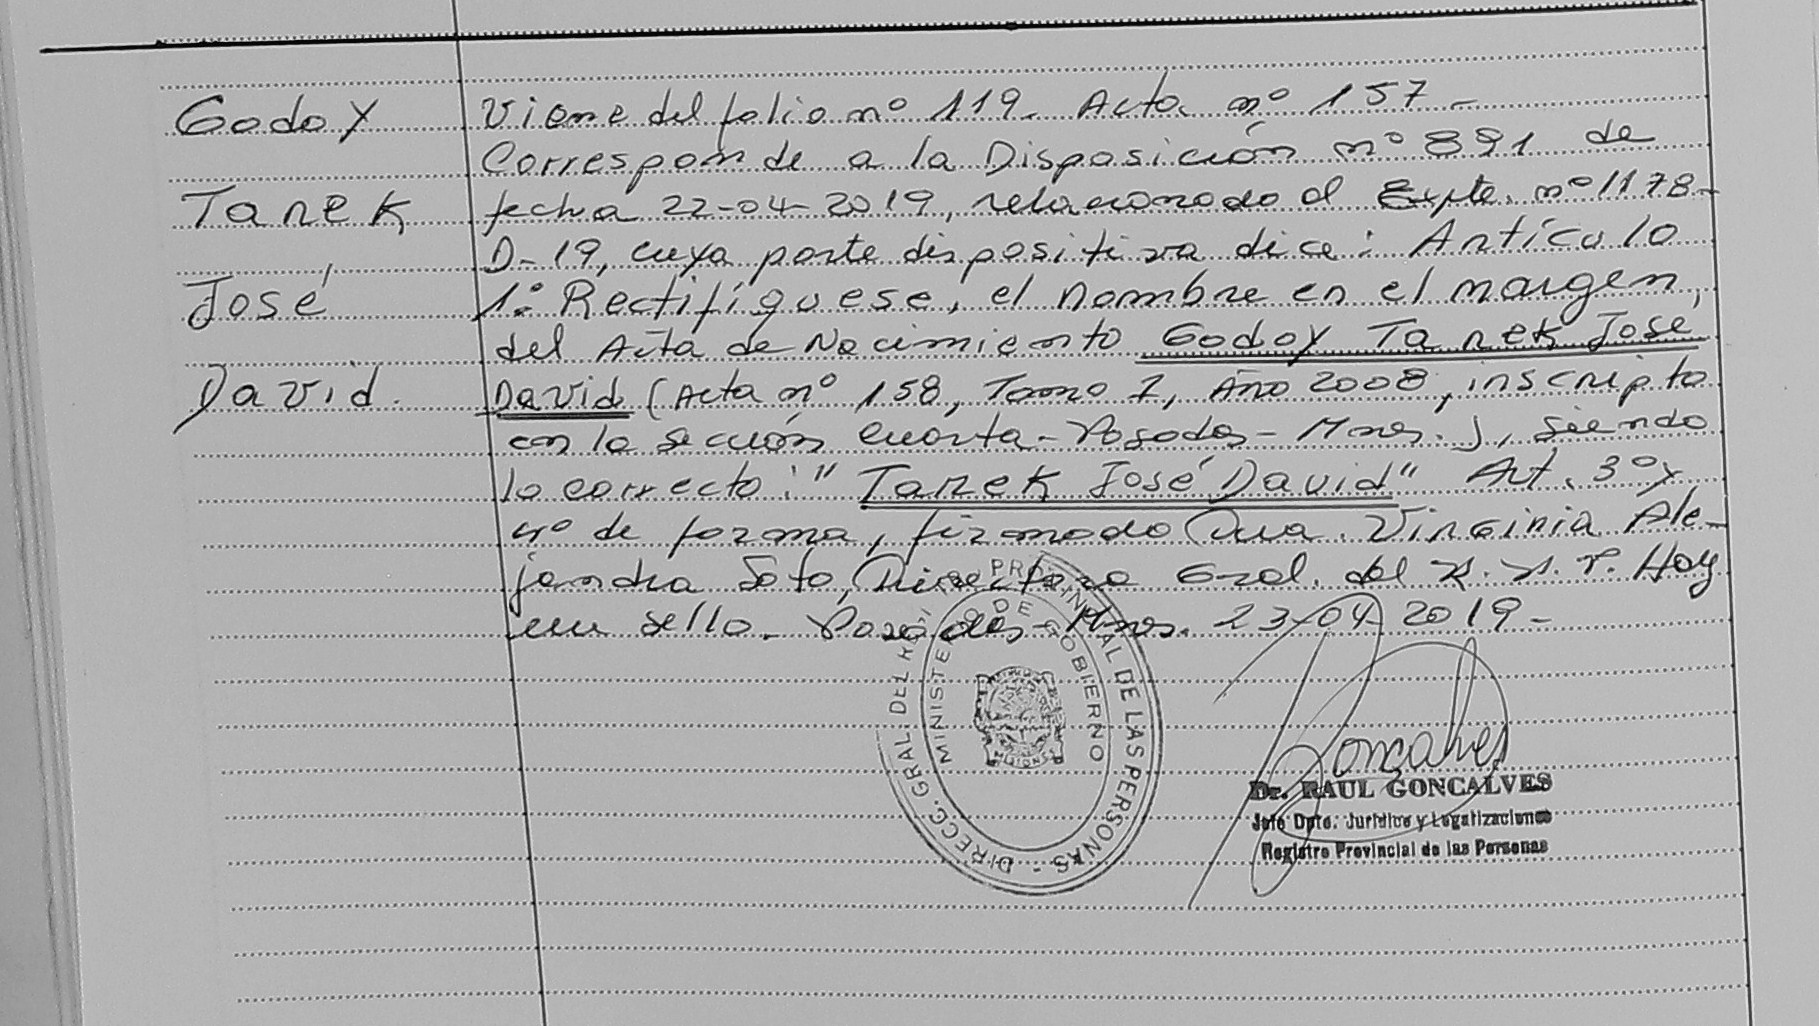 Godoy
Tanek
José
David.
Viene del folio nº 119. Acta nº 157-
Corresponde a la Disposición nº 891 de
fecha 22-04-2019, relacionado al Expte. nº 1178-
D-19, cuya parte dispositiva dice: Artículo
1º Rectifíquese, el nombre en el margen,
del Acta de Nacimiento Godoy Tanek José
David (Acta nº 158, Tomo I, Año 2008, inscripta
en la sección cuarta-Posadas-Mnes.), siendo
lo correcto: "Tanek José David" Art. 3º y
4º de forma, firmado Dra. Virginia Ale-
jandra Soto, Directora Gral. del R. P. P. Hay
un sello. Posadas-Mnes. 23-04-2019-
DIRECC. GRAL. DEL REGISTRO PROVINCIAL DE LAS PERSONAS -
MINISTERIO DE GOBIERNO
MISIONES
Goncalves
Dr. RAUL GONCALVES
Jefe Dpto. Jurídico y Legalizaciones
Registro Provincial de las Personas